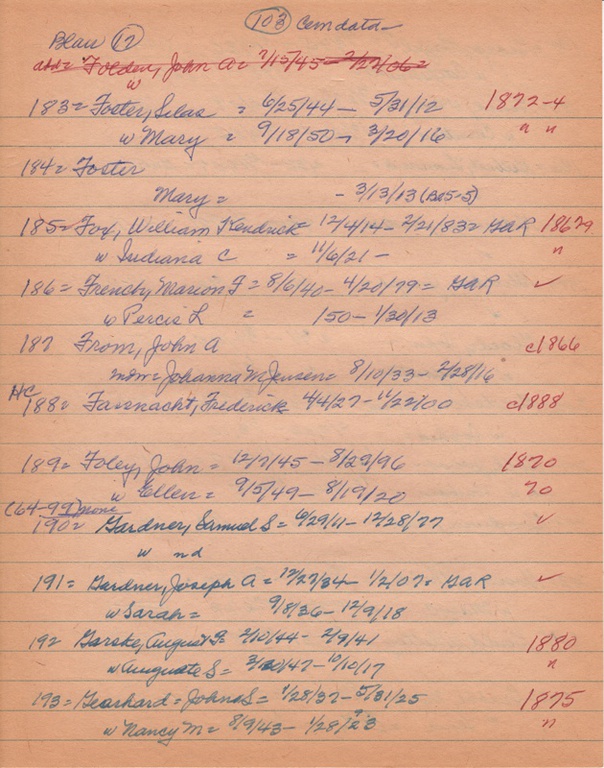 103 Cem data
Blau 17
Folden, John A = 7/15/45 - 2/27/06 =
w
183 = Foster, Silas = 6/25/44 - 5/31/12 1872-4
w Mary = 9/18/50 - 3/20/16 " "
184 = Foster
Mary = - 3/13/13 (Bk5-5)
185 = Fox, William Kendrick = 12/4/14 - 2/21/83 = GAR 1867
w Indiana C = 11/6/21 - "
186 = French, Marion F = 8/6/40 - 4/20/79 = GAR ✓
w Percis L = /50 - 1/30/13
187 From, John A c1866
mom = Johanna M Jensen = 8/10/33 - 2/28/16
HC
188 = Fassnacht, Frederick 4/4/27 - 11/22/00 c1888
189 = Foley, John = 12/7/45 - 8/29/96 1870
w Ellen = 9/5/49 - 8/19/20 70
(64-99) none
190 = Gardner, Samuel S = 6/29/11 - 12/28/77 ✓
w nd
191 = Gardner, Joseph A = 12/27/34 - 1/2/07 = GAR ✓
w Sarah = 9/8/36 - 12/9/18
192 Garske, August F = 2/10/44 - 2/9/41 1880
w Auguste S = 3/20/47 - 10/10/17 "
193 = Gearhard = John S = 1/28/37 - 5/31/25 1875
w Nancy M = 8/9/43 - 1/28/23 "